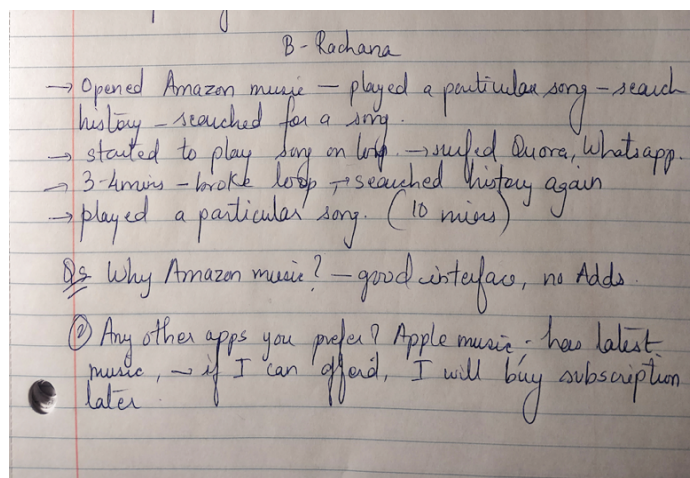 B - Rachana
→ Opened Amazon music — played a particular song - search
history - searched for a song.
→ started to play song on loop. → surfed Quora, Whatsapp.
→ 3-4mins - broke loop → searched history again
→ played a particular song. (10 mins)
Qs Why Amazon music? - good interface, no Adds.
② Any other apps you prefer? Apple music - has latest
music, → if I can afford, I will buy subscription
later.